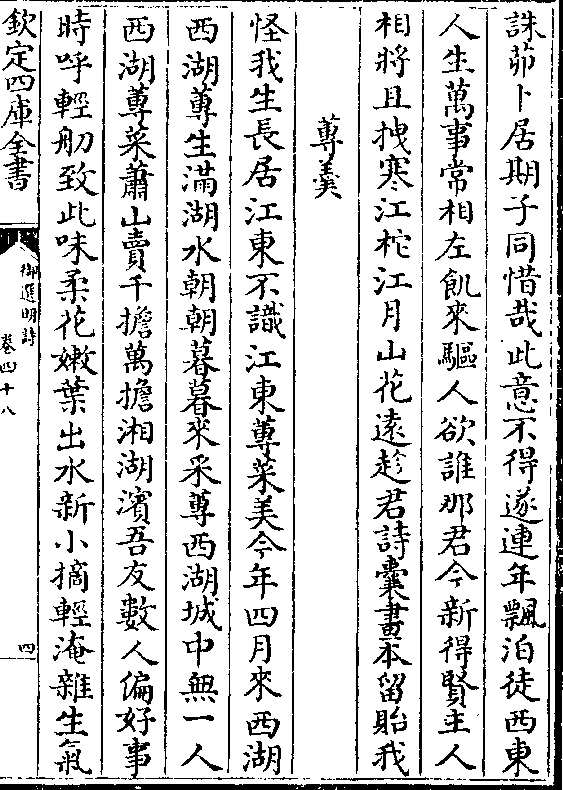 誅茆卜居期子同惜哉此意不得遂連年飄泊徒西東
人生萬事常相左飢來驅人欲誰那君今新得賢主人
相將且拽寒江柁江月山花遠趁君詩囊畫本留貽我
蓴羹
怪我生長居江東不識江東蓴菜美今年四月來西湖
西湖蓴生滿湖水朝朝暮暮來采蓴西湖城中無一人
西湖蓴菜蕭山賣千擔萬擔湘湖濱吾友數人偏好事
時呼輕舠致此味柔花嫩葉出水新小摘輕淹雜生氣
欽定四庫全書
御選明詩
卷四十八
四